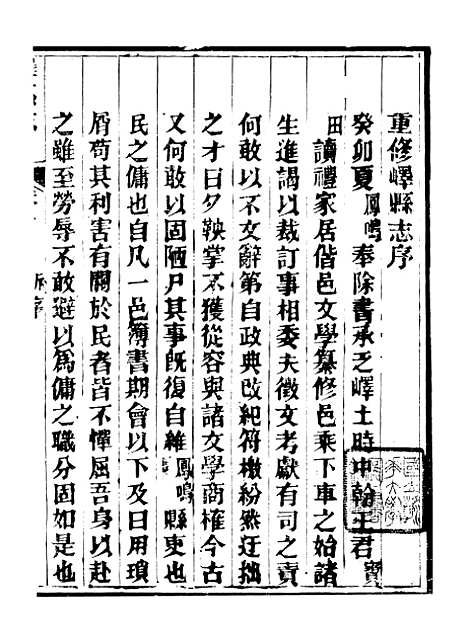 重修嶧縣志序
癸卯夏鳳鳴奉除書承乏嶧土時中翰王君寶
田讀禮家居偕邑文學纂修邑乘下車之始諸
生進謁以裁訂事相委夫徵文考獻有司之責
何敢以不文辭第自政典改紀符檄紛然迂拙
之才日夕鞅掌不獲從容與諸文學商榷今古
又何敢以固陋尸其事既復自維鳳鳴縣吏也
民之傭也自凡一邑簿書期會以下及日用瑣
屑苟其利害有關於民者皆不憚屈吾身以赴
之雖至勞辱不敢避以爲傭之職分固如是也
序